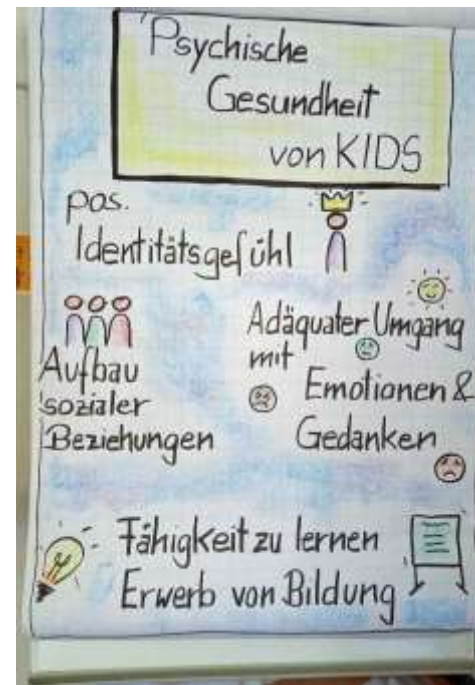 Psychische
Gesundheit
von KIDS
pos.
Identitätsgefühl
Aufbau
sozialer
Beziehungen
Adäquater Umgang
mit
Emotionen &
Gedanken
Fähigkeit zu lernen
Erwerb von Bildung